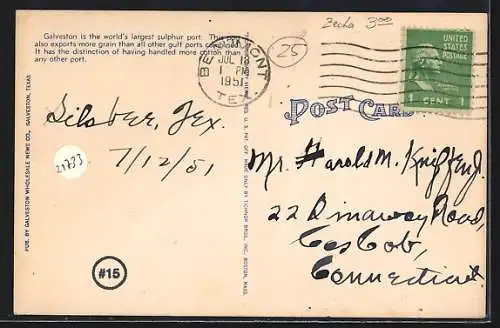 Galveston is the world's largest sulphur port. This
also exports more grain than all other gulf ports combined.
It has the distinction of having handled more cotton than
any other port.
Zecha 3.00
25
BEAUMONT
JUL 13
1 PM
1951
TEX.
UNITED
STATES
POSTAGE
1 CENT 1
POST CARD
Silsbee, Tex.
7/12/51
21723
#15
PUB. BY GALVESTON WHOLESALE NEWS CO., GALVESTON, TEXAS
MADE ONLY BY TICHNOR BROS. INC., BOSTON, MASS.
Mr. Harold M.
22 Road,
Cos Cob,
Connecticut.